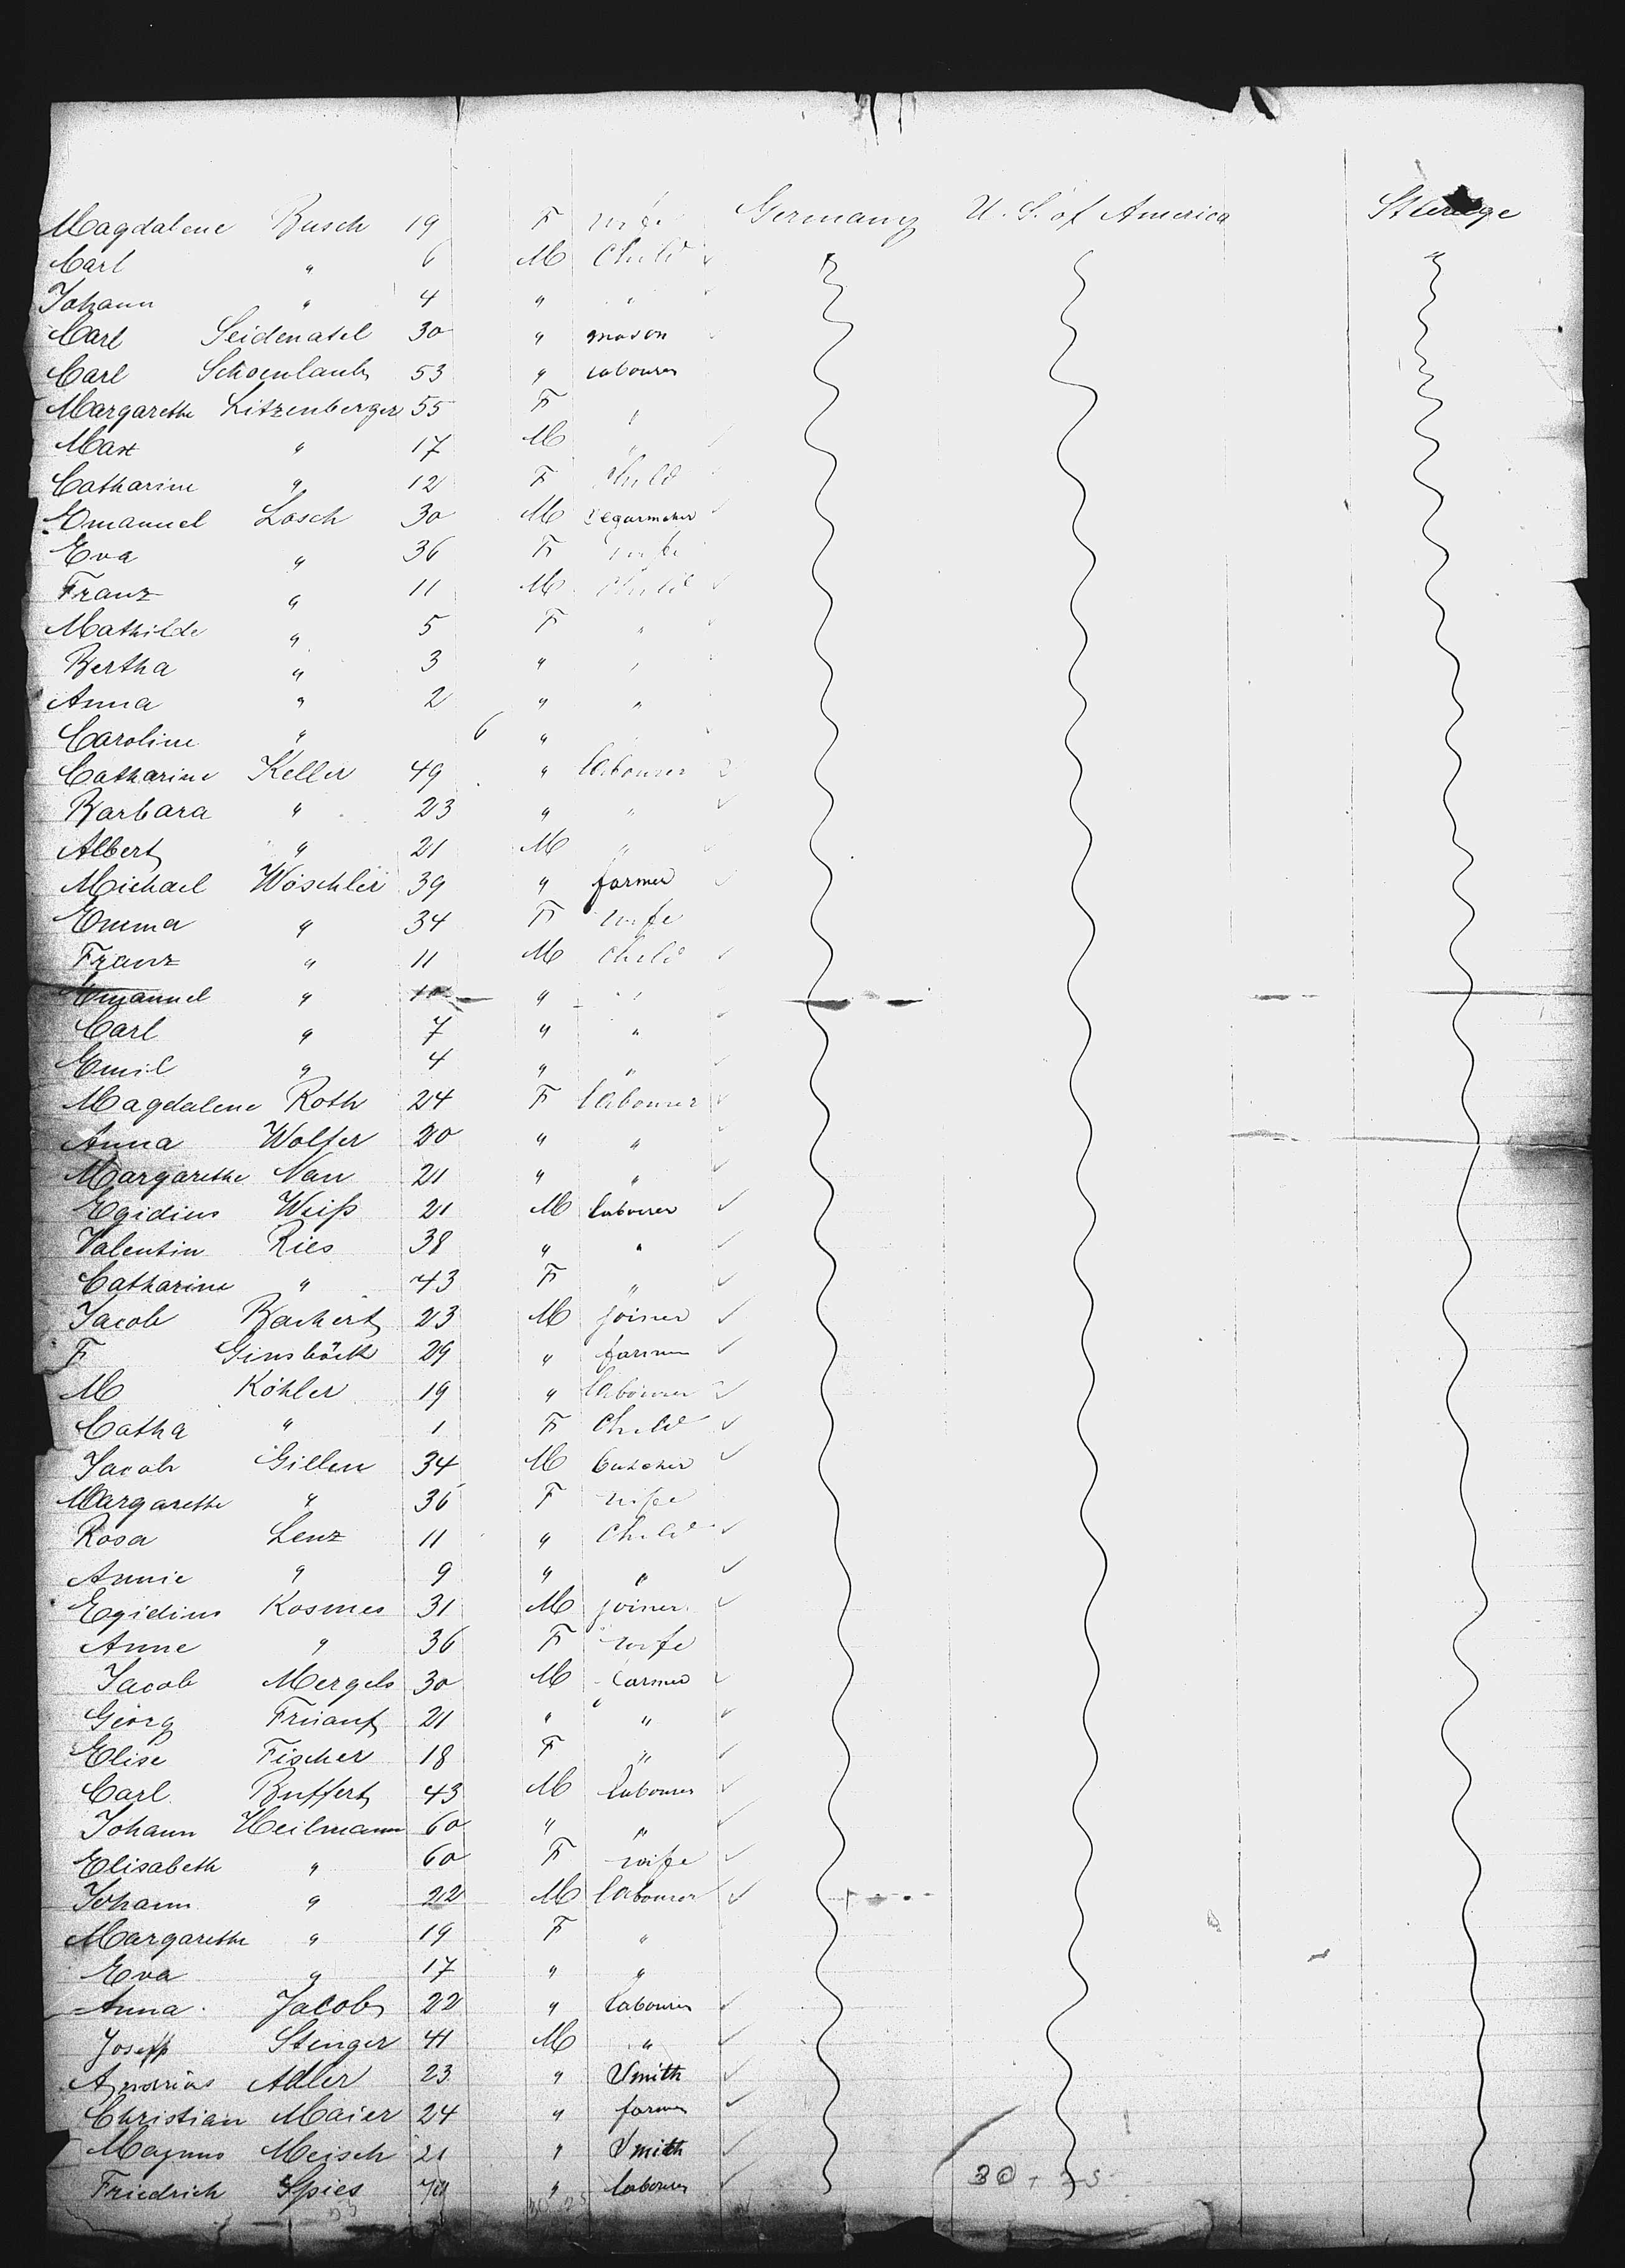 Magdalene Busch 19 F wife Germany U. S. of America Steerage
Carl " 6 M Child
Johann " 4 " "
Carl Seidenatel 30 " mason
Carl Schoenlaub 53 " labourer
Margarethe Litzenberger 55 F "
Max " 17 M "
Catharine " 12 F Child
Emanuel Losch 30 M Segarmaker
Eva " 36 F wife
Franz " 11 M Child
Mathilde " 5 F "
Bertha " 3 " "
Anna " 2 " "
Caroline " 6 " "
Catharine Keller 49 " labourer
Barbara " 23 " "
Albert " 21 M "
Michael Wöschler 39 " farmer
Emma " 34 F wife
Franz " 11 M Child
Emanuel " 10 " "
Carl " 7 " "
Emil " 4 " "
Magdalene Roth 24 F labourer
Anna Wolfer 20 " "
Margarethe Nau 21 " "
Egidius Weiß 21 M labourer
Valentin Ries 38 " "
Catharine " 43 F "
Jacob Bachert 23 M joiner
F Ginsböck 29 " farmer
M Köhler 19 " labourer
Catha " 1 F Child
Jacob Gillen 34 M butcher
Margarethe " 36 F wife
Rosa Lenz 11 " Child
Annie " 9 " "
Egidius Kosmes 31 M joiner
Anne " 36 F wife
Jacob Mergels 30 M farmer
Georg Früauf 21 " "
Elise Fischer 18 F "
Carl Buffert 43 M labourer
Johann Heilmann 60 " "
Elisabeth " 60 F wife
Johann " 22 M labourer
Margarethe " 19 F "
Eva " 17 " "
Anna Jacob 22 " labourer
Joseph Stenger 41 M "
Adler 23 " Smith
Christian Maier 24 " farmer
Magnus Meisch 21 " Smith
Friedrich Spies " labourer